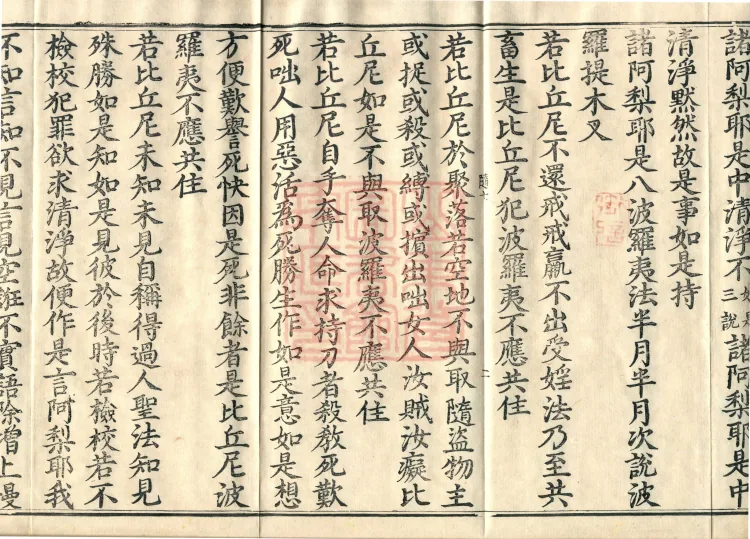 諸阿梨耶是中清淨不如是三說諸阿梨耶是中
清淨默然故是事如是持
諸阿梨耶是八波羅夷法半月半月次說波
羅提木叉
若比丘尼不還戒戒羸不出受婬法乃至共
畜生是比丘尼犯波羅夷不應共住
若比丘尼於聚落若空地不與取隨盜物主
或捉或殺或縛或擯出咄女人汝賊汝癡比
丘尼如是不與取波羅夷不應共住
若比丘尼自手奪人命求持刀者殺教死歎
死咄人用惡活為死勝生作如是意如是想
方便歎譽死快因是死非餘者是比丘尼波
羅夷不應共住
若比丘尼未知未見自稱得過人聖法知見
殊勝如是知如是見彼於後時若檢校若不
檢校犯罪欲求清淨故便作是言阿梨耶我
不知言知不見言見空誑不實語除增上慢